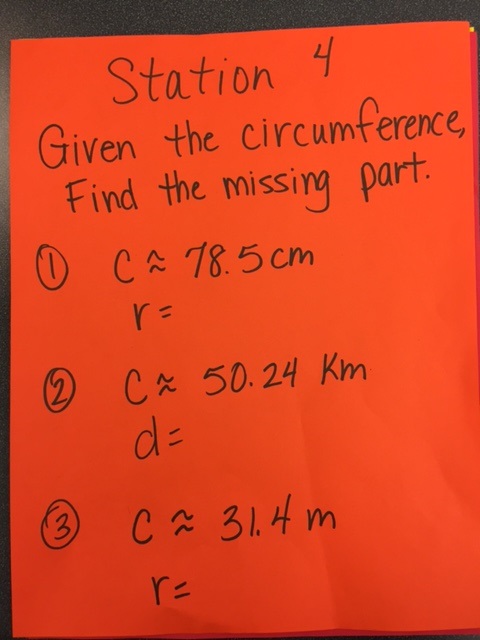 Station 4
Given the circumference,
Find the missing part.
① C ≈ 78.5 cm
r =
② C ≈ 50.24 Km
d =
③ C ≈ 31.4 m
r =